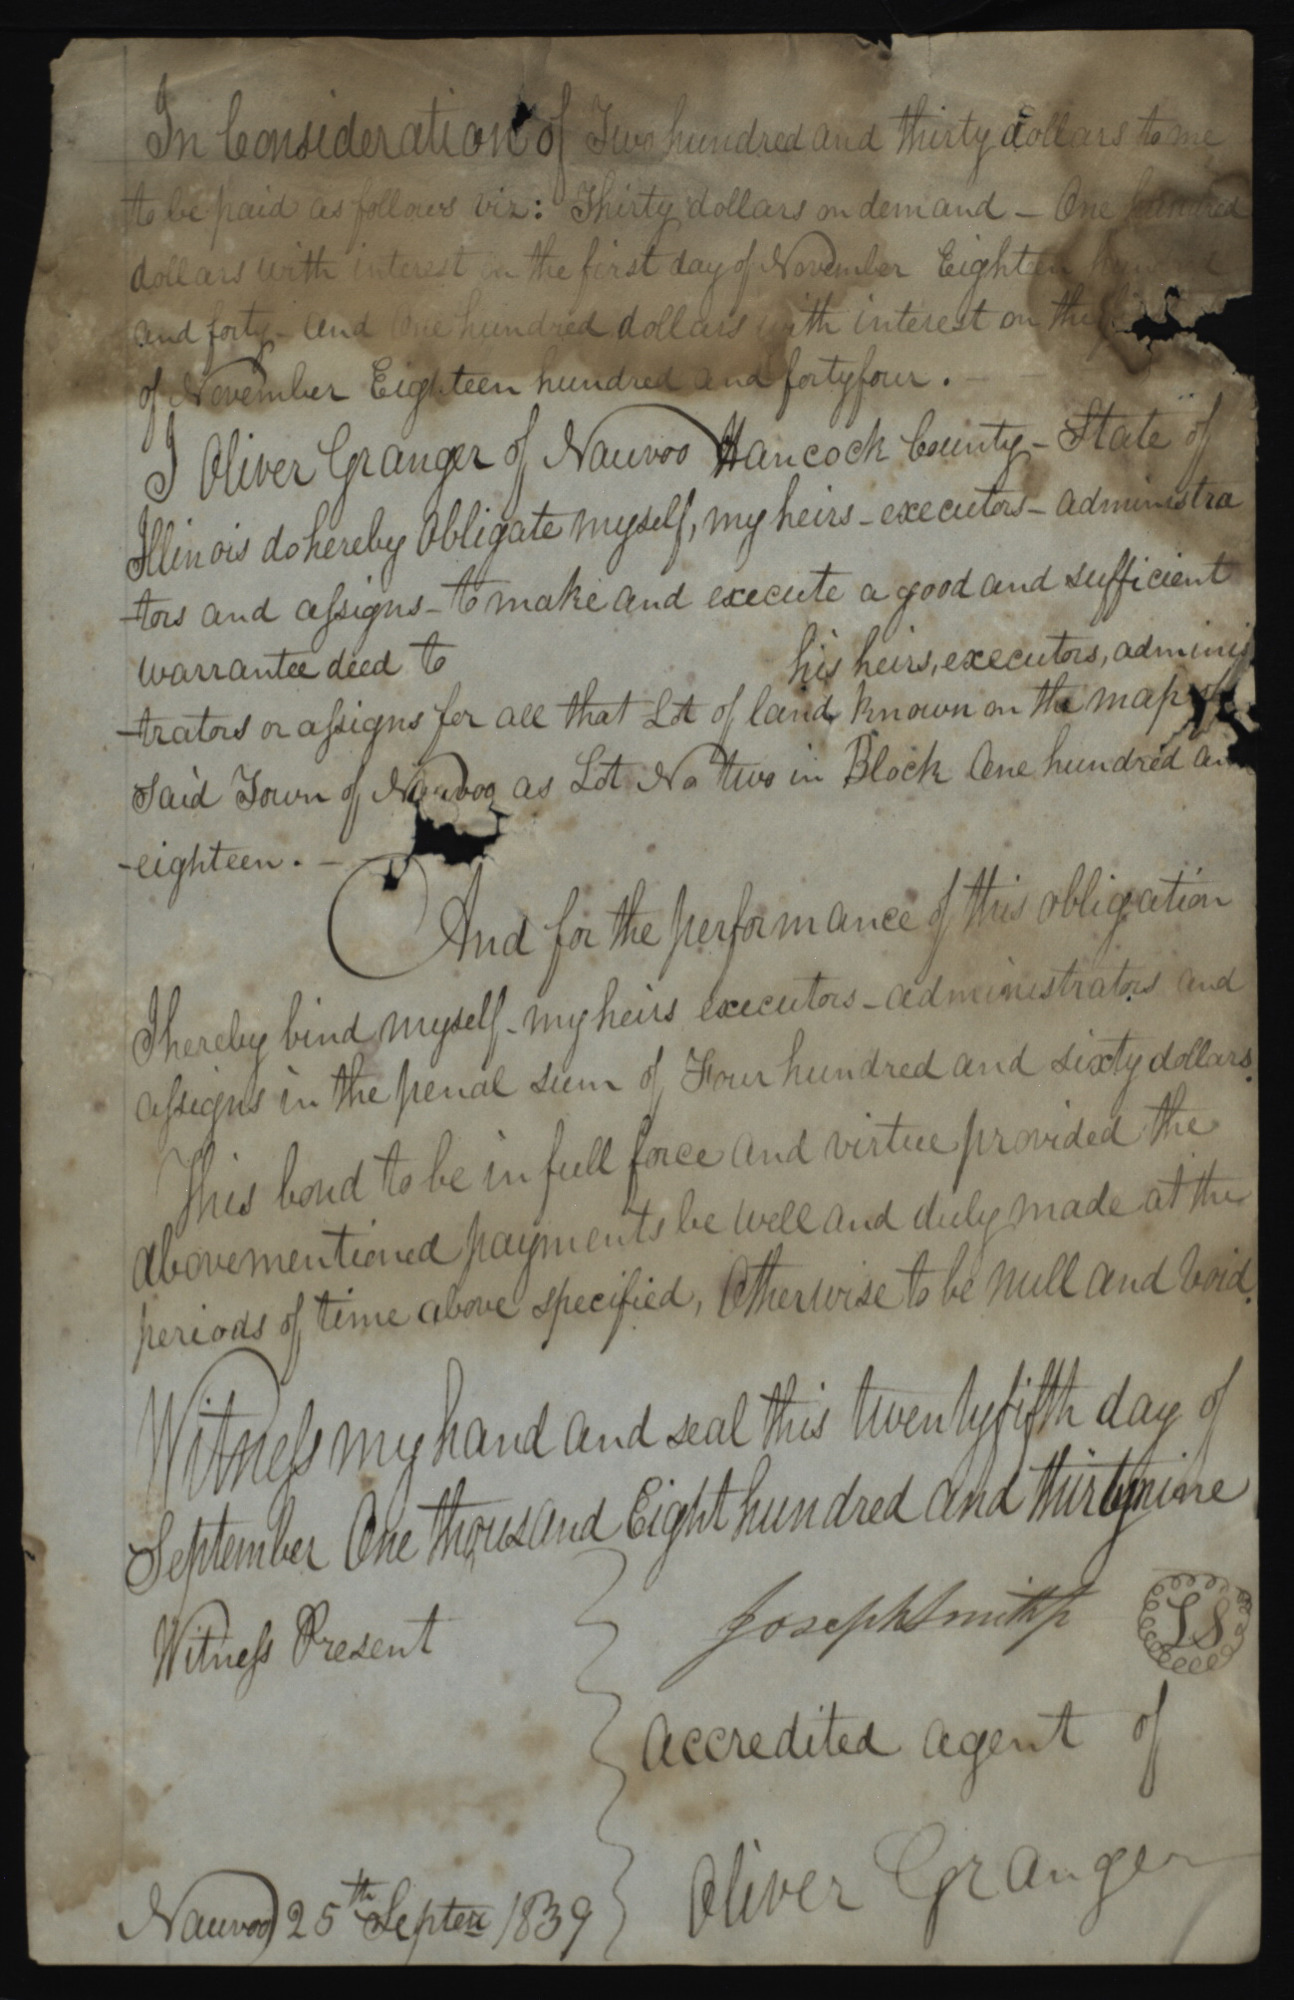 In Consideration of Two hundred and thirty dollars to me
to be paid as follows viz: Thirty dollars on demand - One hundred
dollars with interest on the first day of November Eighteen hundred
and forty - and One hundred dollars with interest on the
of November Eighteen hundred and fortyfour. -
I Oliver Granger of Nauvoo Hancock County - State of
Illinois do hereby obligate myself, my heirs - executors - administra
-tors and assigns - to make and execute a good and sufficient
warrantee deed to his heirs, executors, adminis
-trators or assigns for all that Lot of land, known on the map of
said Town of Nauvoo as Lot No two in Block One hundred an
-eighteen. -
And for the performance of this obligation
I hereby bind myself - my heirs executors - administrators and
assigns in the penal sum of Four hundred and sixty dollars.
This bond to be in full force and virtue provided the
abovementioned payments be well and duly made at the
periods of time above specified, Otherwise to be null and void.
Witness my hand and seal this twentyfifth day of
September One thousand Eight hundred and thirtynine
Witness Present
Joseph Smith
LS
accredited agent of
Oliver Granger
Nauvoo 25th Septer 1839